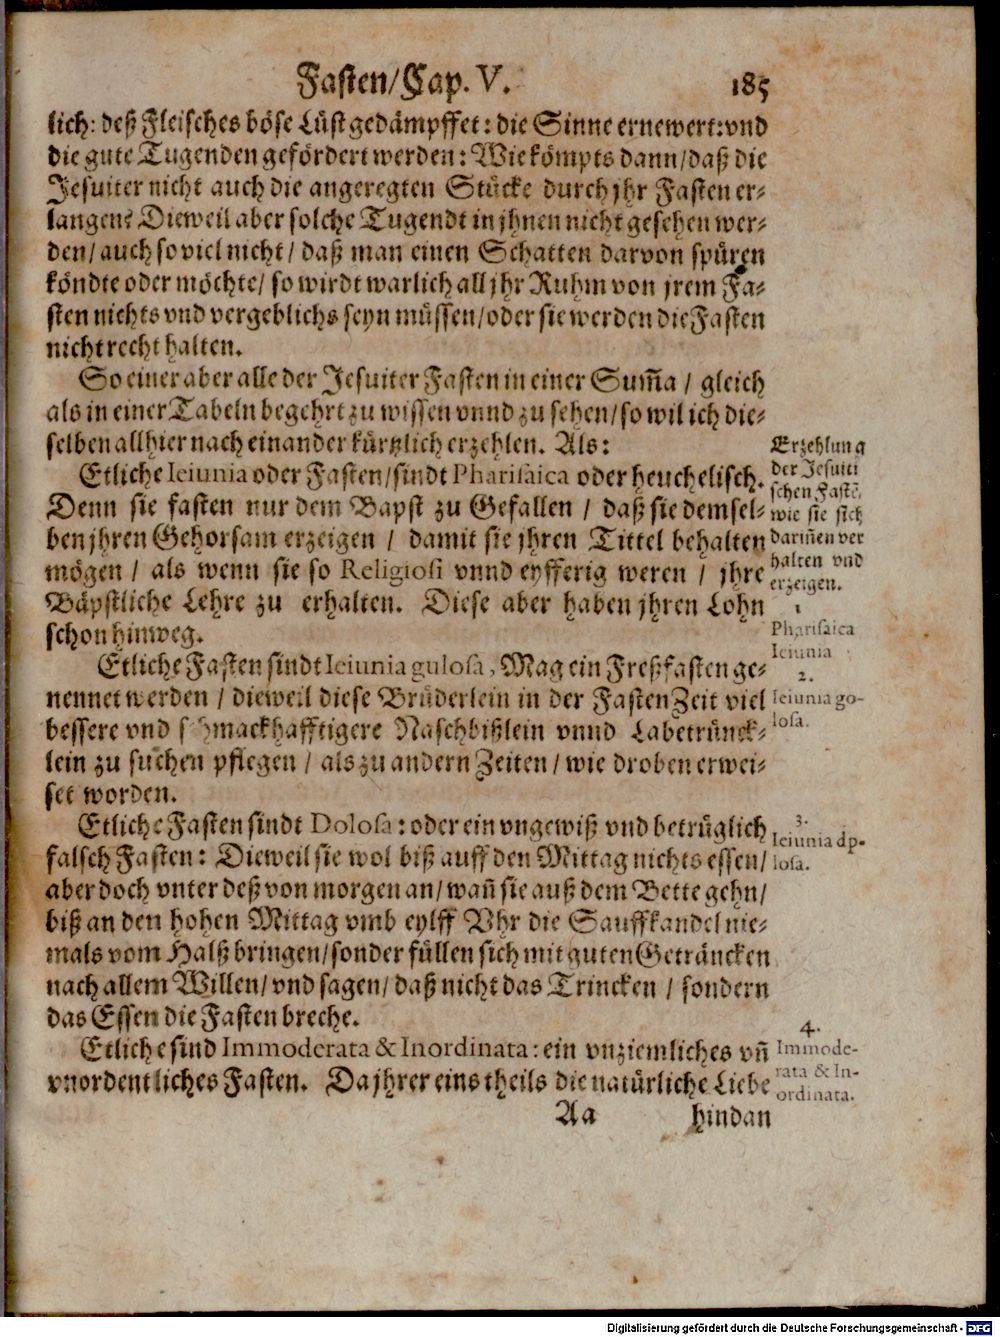 Fasten/Cap. V. 185
lich: deß Fleisches böse Lüst gedämpffet: die Sinne ernewert: vnd
die gute Tugenden gefördert werden: Wie kömpts dann/ daß die
Jesuiter nicht auch die angeregten Stücke durch jhr Fasten er-
langen? Dieweil aber solche Tugendt in jhnen nicht gesehen wer-
den/ auch so viel nicht/ daß man einen Schatten darvon spüren
köndte oder möchte/ so wirdt warlich all jhr Ruhm von jrem Fa-
sten nichts vnd vergeblichs seyn müssen/ oder sie werden die Fasten
nicht recht halten.
So einer aber alle der Jesuiter Fasten in einer Sum̃a / gleich
als in einer Tabeln begehrt zu wissen vnnd zu sehen/ so wil ich die-
selben allhier nach einander kürtzlich erzehlen. Als:
Erzehlung
der Jesuiti
schen Fastē,
wie sie sich
darin̄en ver
halten vnd
erzeigen.
Etliche Ieiunia oder Fasten/ sindt Pharisaica oder heuchelisch.
Denn sie fasten nur dem Bapst zu Gefallen / daß sie demsel-
ben jhren Gehorsam erzeigen / damit sie jhren Tittel behalten
mögen / als wenn sie so Religiosi vnnd eyfferig weren / jhre
Bäpstliche Lehre zu erhalten. Diese aber haben jhren Lohn
schon hinweg.
1
Pharisaica
Ieiunia
Etliche Fasten sindt Ieiunia gulosa, Mag ein Freßfasten ge-
nennet werden / dieweil diese Brüderlein in der Fasten Zeit viel
bessere vnd schmackhafftigere Naschbißlein vnnd Labetrünck-
lein zu suchen pflegen / als zu andern Zeiten / wie droben erwei-
set worden.
2.
Ieiunia go-
losa.
Etliche Fasten sindt Dolosa: oder ein vngewiß vnd betrüglich
falsch Fasten: Dieweil sie wol biß auff den Mittag nichts essen/
aber doch vnter deß von morgen an/ wañ sie auß dem Bette gehn/
biß an den hohen Mittag vmb eylff Vhr die Sauffkandel nie-
mals vom Halß bringen/ sonder füllen sich mit guten Geträncken
nach allem Willen/ vnd sagen/ daß nicht das Trincken / sondern
das Essen die Fasten breche.
3.
Ieiunia do-
losa.
Etliche sind Immoderata & Inordinata: ein vnziemliches vñ
vnordentliches Fasten. Da jhrer eins theils die natürliche Liebe
4.
Immode-
rata & In-
ordinata.
Aa hindan
Digitalisierung gefördert durch die Deutsche Forschungsgemeinschaft - DFG